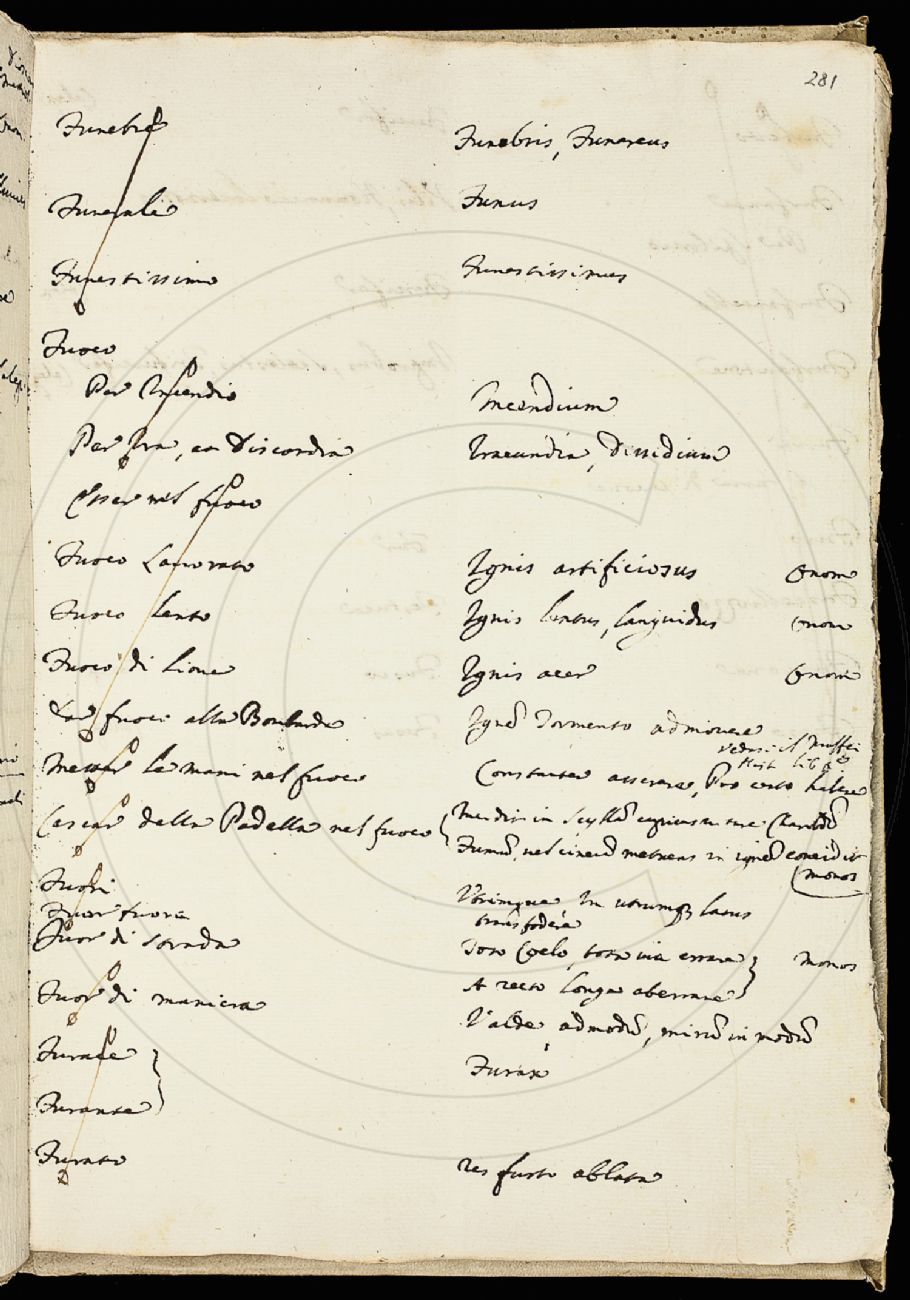 281
Funebre Funebris, Funereus
Funerale Funus
Funestissimo Funestissimus
Fuoco
Per Incendio Incendium
Per Ira, ea Discordia Iracundia, Dissidium
Esser nel fuoco
Fuoco Lavorato Ignis artificiosus Onom
Fuoco lento Ignis lentus, languidus Onom
Fuoco di Lione Ignis acer Onom
Dar fuoco alla Bombarda Ignē Tormento admovere
Vedasi il Maffei
Hist lib
Metter le mani nel fuoco Constanter asserere, Pro certo habere
Cascar dalla Padella nel fuoco Incidit in Scyllā cupiens vitare Charibdī
Fumū, vel cinerē metuens in ignē concidit
Monos
Fuori
Fuor fuora Utrimque In utrumq latus
transfodere
Fuor di strada Toto Coelo, tota via errare Monos
A recto longe aberrare
Fuor di maniera Valde, admodū, mirū in modū
Furace Furax
Furante
Furato res furto ablata